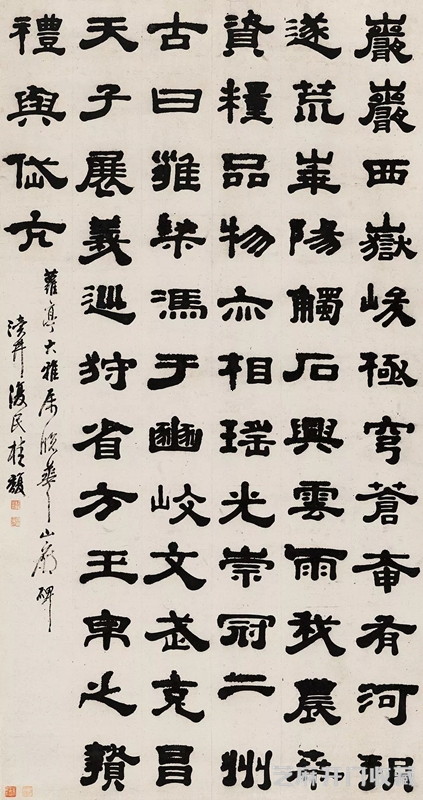 巖巖西嶽峻極穹蒼奄有河朔
遂荒崋陽觸石興雲雨我農桑
資糧品物亦相瑤光崇冠二州
古曰雍梁馮于豳岐文武克昌
天子展義巡狩省方玉帛之贄
禮與岱亢
蘿亭大雅屬臨華山廟碑
瀆井復民桂馥